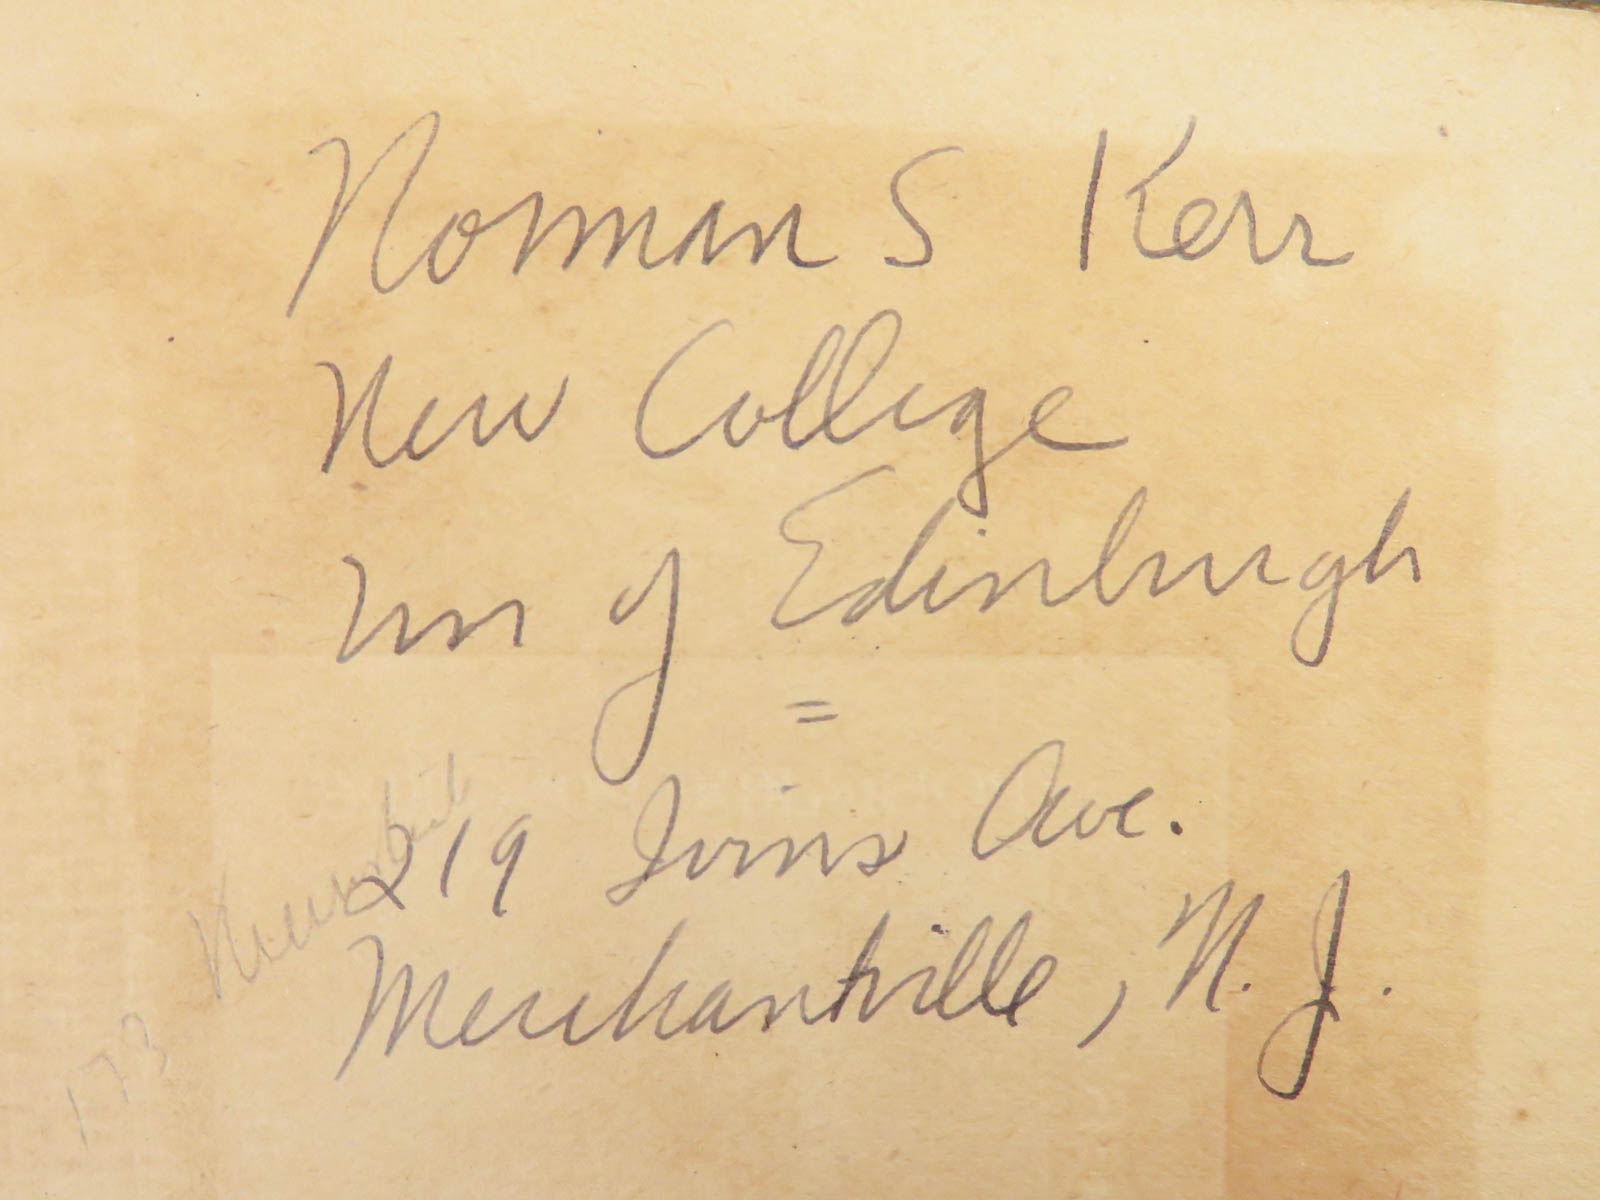 Norman S Kerr
New College
Un of Edinburgh
=
219 Ivins Ave.
Merchantville, N. J.
173